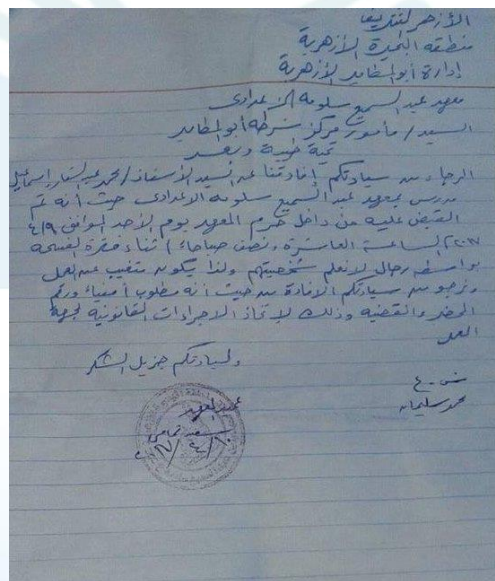 الأزهر الشريف
منطقة البحيرة الأزهرية
إدارة أبو المطامير الأزهرية
معهد عبد السميع سلومه الاعدادى
السيد / مأمور مركز شرطه أبو المطامير
تحية طيبة وبعد
الرجاء من سيادتكم إفادتنا عن السيد الأستاذ / محمد عبد الستار إسماعيل
مدرس بمعهد عبد السميع سلومه الاعدادى حيث أنه تم
القبض عليه من داخل حرم المعهد يوم الأحد الموافق ٤/٩
٢٠١٧ الساعة العاشرة ونصف صباحا أثناء فترة الفسحه
بواسطه رجال لانعلم شخصيتهم ولذا يكون تغيب عن العمل
ونرجو من سيادتكم الافادة من حيث أنه مطلوب أمنياً ورقم
المحضر والقضيه وذلك لاتخاذ الاجراءات القانونية لجهة
العمل
ولسيادتكم جزيل الشكر
ش . ع
محمد سليمان
المعهد